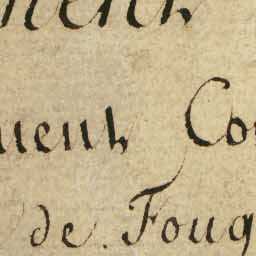 ment
ment Co
de Foug